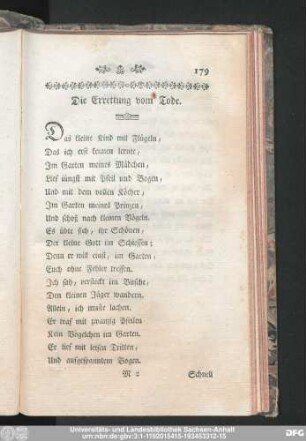 179
Die Errettung vom Tode.
Das kleine Kind mit Flügeln,
Das ich erst kennen lerne,
Im Garten meines Mädchen,
Lief jüngst mit Pfeil und Bogen,
Und mit dem vollen Köcher,
Im Garten meines Prinzen,
Und schoß nach kleinen Vögeln.
Es übte sich, ihr Schönen,
Der kleine Gott im Schiessen;
Denn er will einst, im Garten,
Euch ohne Fehler treffen.
Ich sah, versteckt im Busche,
Den kleinen Jäger wandern,
Allein, ich mußte lachen.
Er traf mit zwanzig Pfeilen
Kein Vögelchen im Garten.
Er lief mit leisen Tritten,
Und aufgespanntem Bogen.
M 2 Schnell
Universitäts- und Landesbibliothek Sachsen-Anhalt
urn:nbn:de:gbv:3:1-1192015415-193453312-15
DFG